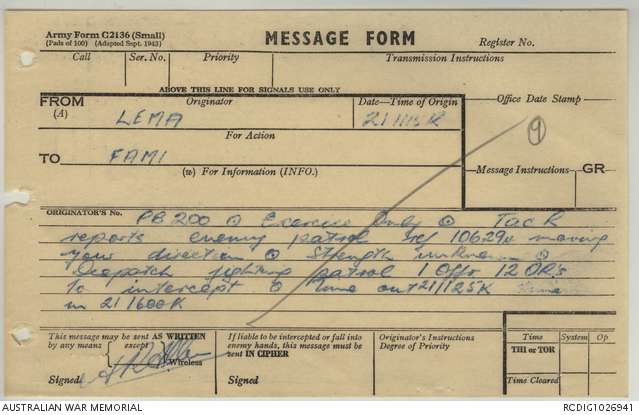 Army Form C2136 (Small)
(Pads of 100) (Adapted Sept. 1943)
MESSAGE FORM
Register No.
Call Ser. No. Priority Transmission Instructions
ABOVE THIS LINE FOR SIGNALS USE ONLY
FROM Originator Date—Time of Origin Office Date Stamp
(A) LEMA 211115K
9
For Action
TO FAMI
(w) For Information (INFO.) Message Instructions GR
ORIGINATOR'S No. PB 200 Exercise Only Tac R
reports enemy patrol ref moving
your direction Strength unknown
Despatch fighting patrol 1 Offr 12 ORs
to intercept Time out 211125K
in 211600K
This message may be sent AS WRITTEN
by any means except
Wireless
Signed
If liable to be intercepted or fall into
enemy hands, this message must be
sent IN CIPHER
Signed
Originator's Instructions
Degree of Priority
Time System Op
THI or TOR
Time Cleared
AUSTRALIAN WAR MEMORIAL RCDIG1026941